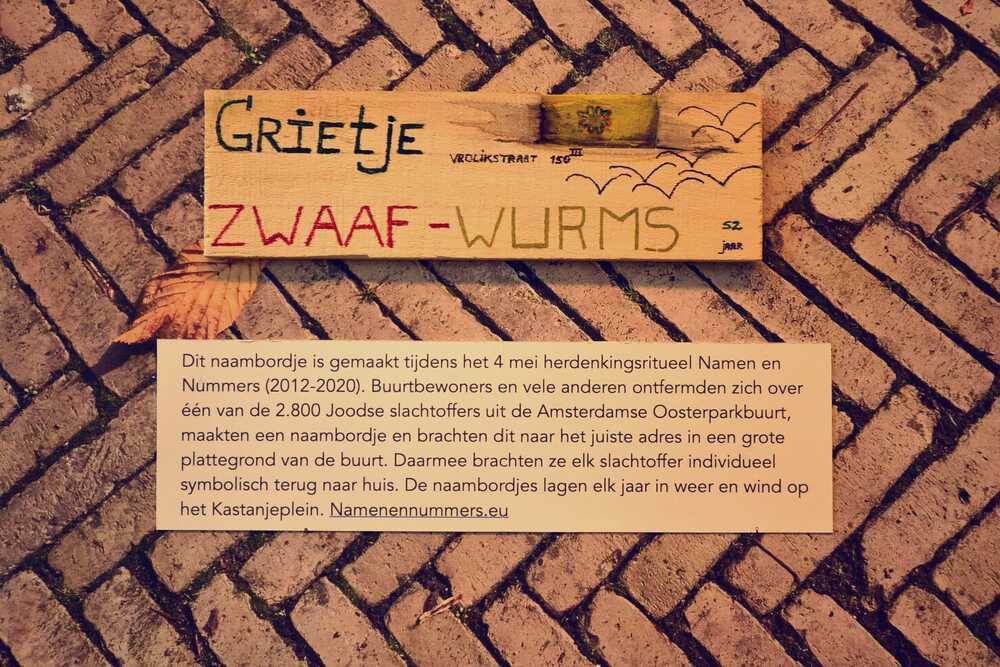 Grietje
VROLIKSTRAAT 150 III
ZWAAF-WURMS
52
JAAR
Dit naambordje is gemaakt tijdens het 4 mei herdenkingsritueel Namen en
Nummers (2012-2020). Buurtbewoners en vele anderen ontfermden zich over
één van de 2.800 Joodse slachtoffers uit de Amsterdamse Oosterparkbuurt,
maakten een naambordje en brachten dit naar het juiste adres in een grote
plattegrond van de buurt. Daarmee brachten ze elk slachtoffer individueel
symbolisch terug naar huis. De naambordjes lagen elk jaar in weer en wind op
het Kastanjeplein. Namenennummers.eu